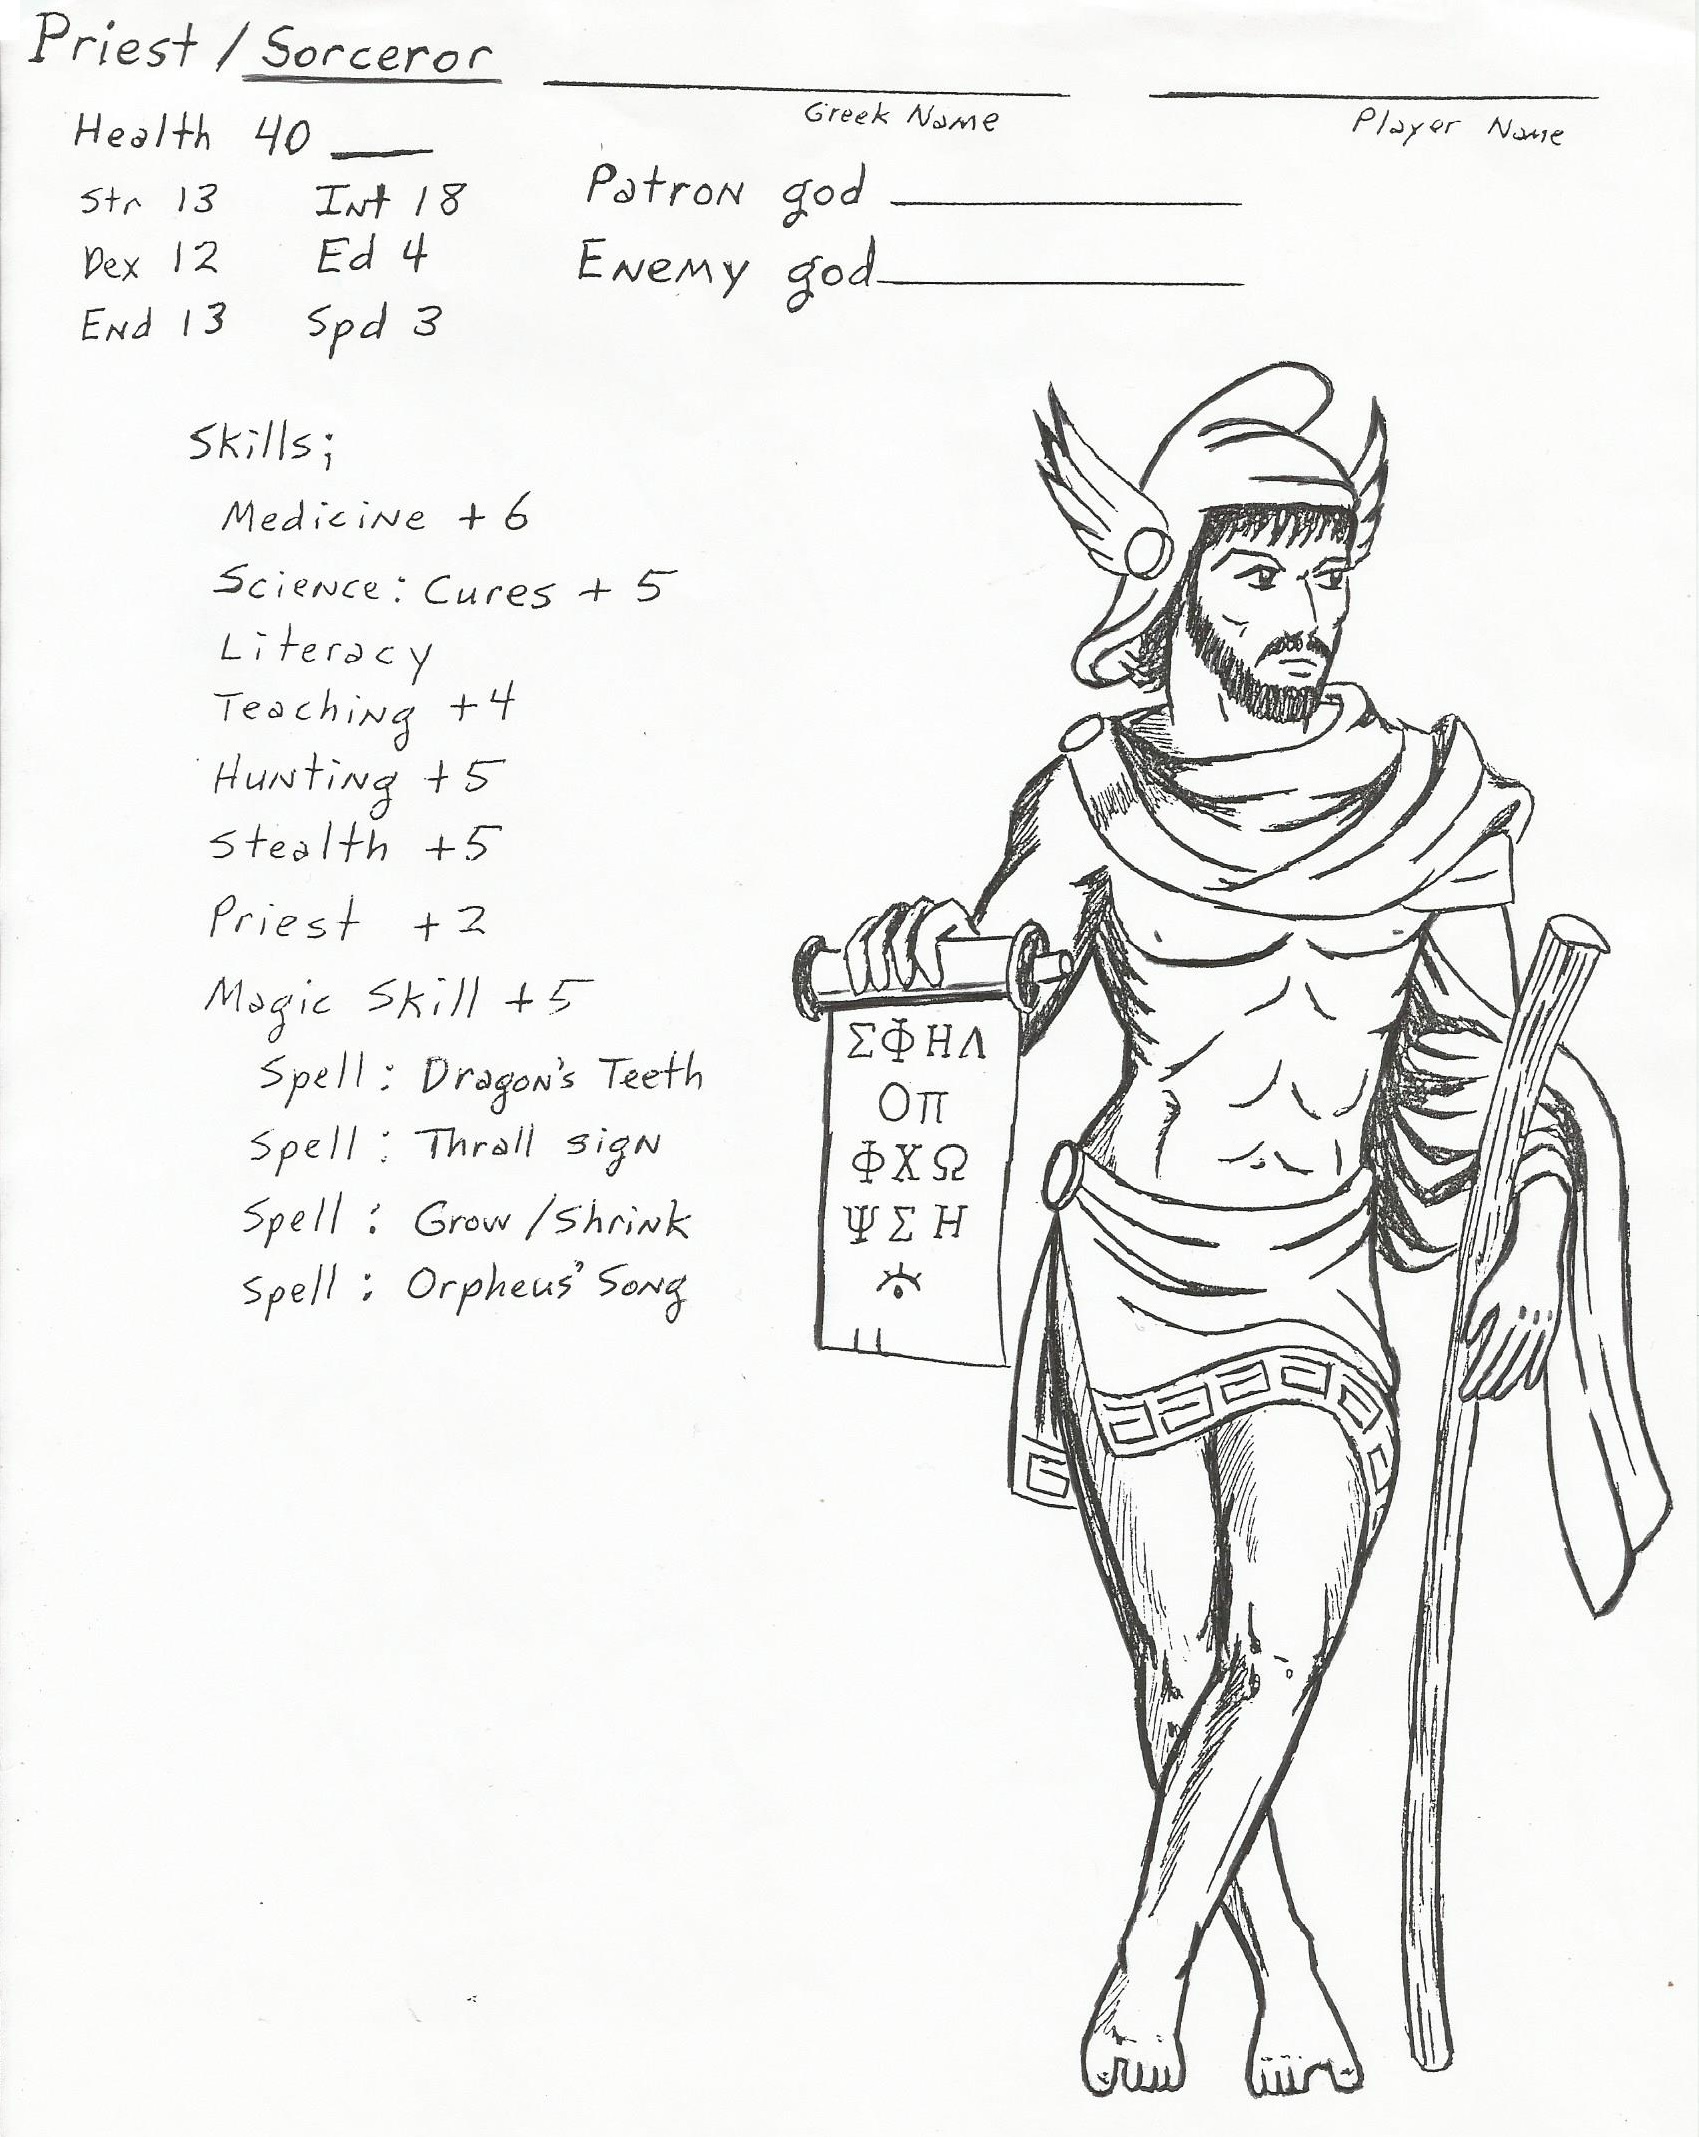 Priest / Sorceror
Greek Name
Player Name
Health 40
Str 13 Int 18
Dex 12 Ed 4
End 13 Spd 3
Patron god
Enemy god
Skills;
Medicine + 6
Science: Cures + 5
Literacy
Teaching +4
Hunting +5
Stealth +5
Priest +2
Magic Skill +5
Spell: Dragon's Teeth
Spell: Thrall sign
Spell: Grow/Shrink
Spell: Orpheus' Song
ΣΦΗΛ
Οπ
ΦΧΩ
ΨΣΗ